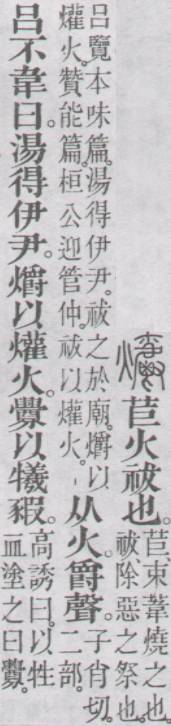 爝 苣火祓也。苣、束葦燒之也。
祓、除惡之祭也。
呂覽本味篇。湯得伊尹。祓之於廟。爝以
爟火。贊能篇。桓公迎管仲。祓以爟火。
从火。爵聲。子肖切。
二部。
呂不韋曰。湯得伊尹。爝以爟火。釁以犧豭。高誘曰。以牲
血塗之曰釁。